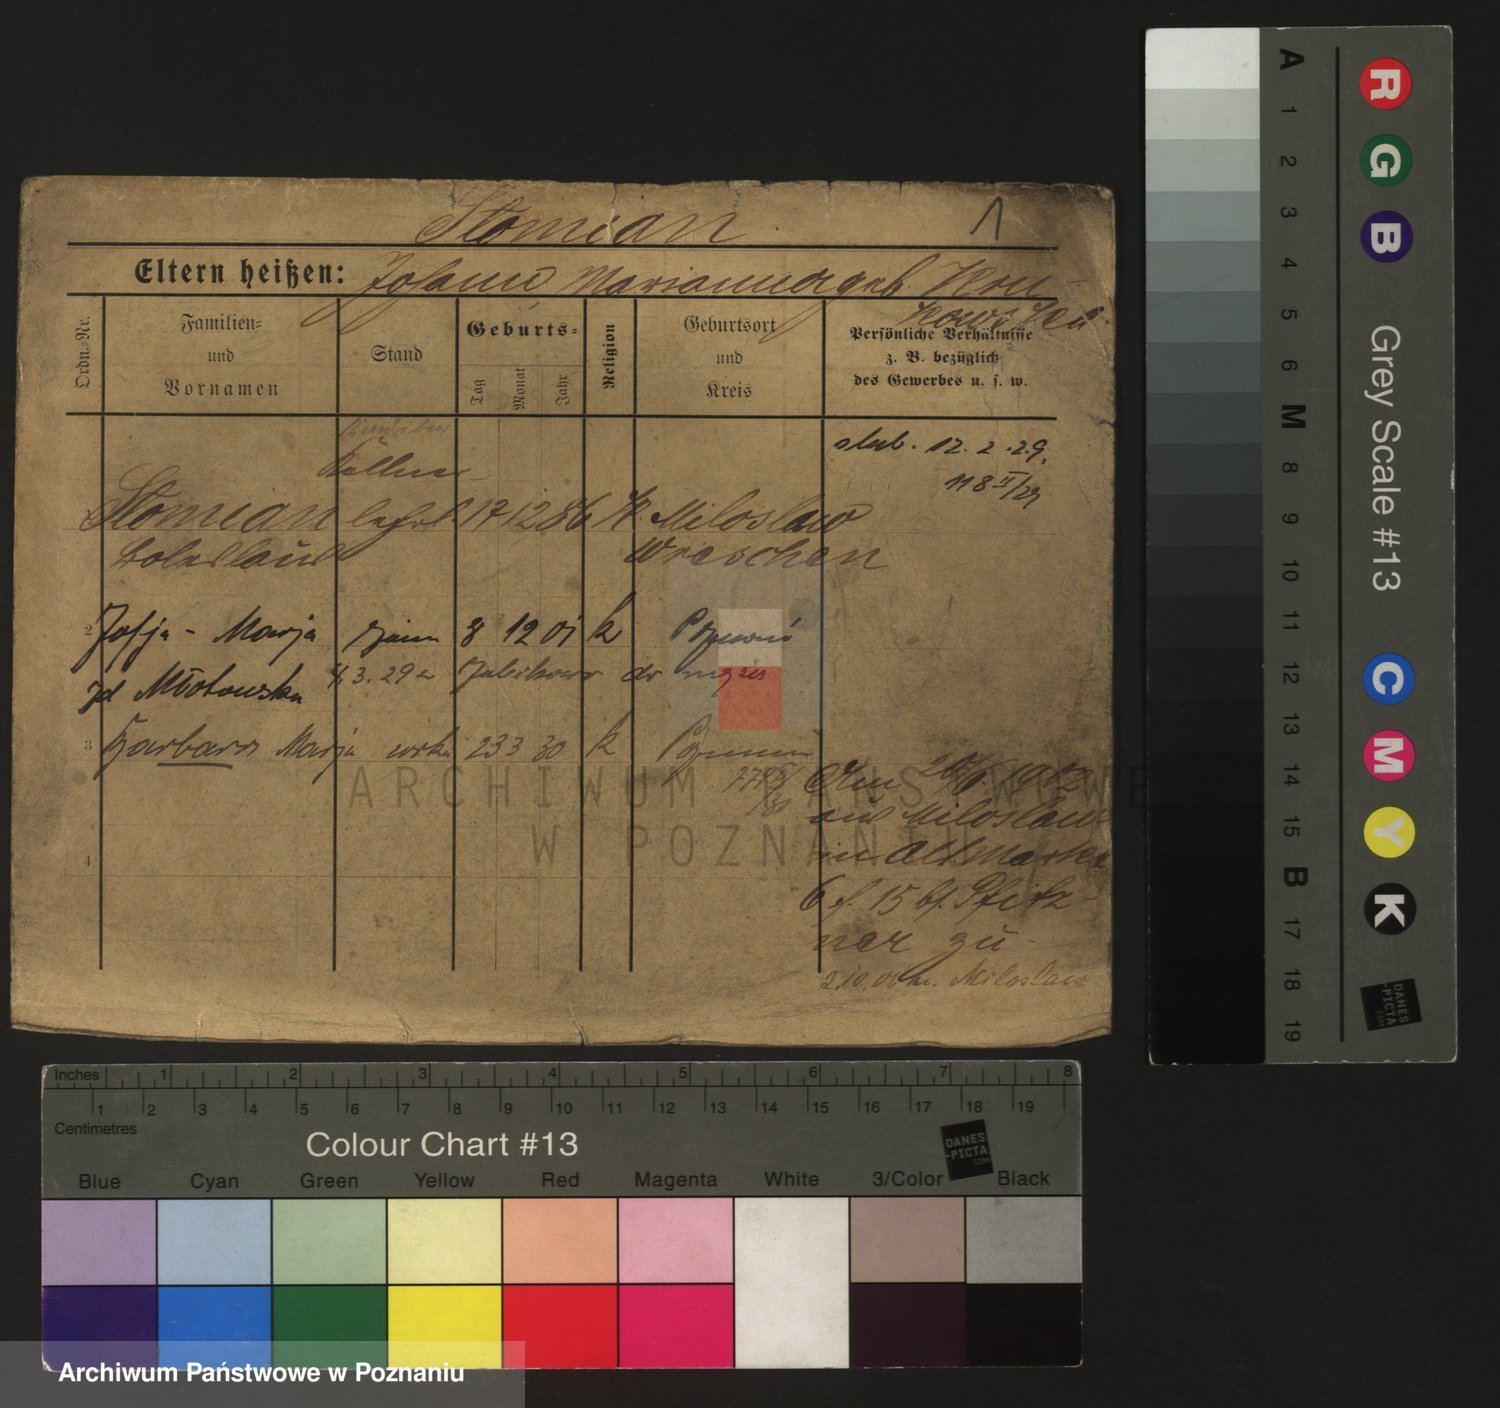 Słomian 1
Eltern heißen: Johann Marianna geb. Kon-
kowska
Ordn.-Nr.
Familien-
und
Vornamen
Stand
Geburts-
Tag
Monat
Jahr
Religion
Geburtsort
und
Kreis
Persönliche Verhältnisse
z. B. bezüglich
des Gewerbes u. s. w.
ślub. 12. 2. 29.
118 II/29
Kellner-
Słomian lehrl. 17 12 86 K. Miloslaw
Boleslaus Wreschen
2 Zofja - Marja żona 8 12 01 k Poznań
zd Młotowska
4. 3. 29 z
3 Barbara Marja córka 23 3 30 k Poznań
4
Am 20/6. 1902
aus Miloslaw
in Altmarkt
6 b. Pfitz-
ner zu
2.10.00 n. Miloslaw
ARCHIWUM PAŃSTWOWE
W POZNANIU
A
1
2
3
4
5
6
M
8
9
10
11
12
13
14
15
B
17
18
19
Grey Scale #13
R
G
B
C
M
Y
K
DANES
-PICTA
.COM
Inches 1 2 3 4 5 6 7 8
1 2 3 4 5 6 7 8 9 10 11 12 13 14 15 16 17 18 19
Centimetres
Colour Chart #13
DANES
-PICTA
.COM
Blue Cyan Green Yellow Red Magenta White 3/Color Black
Archiwum Państwowe w Poznaniu